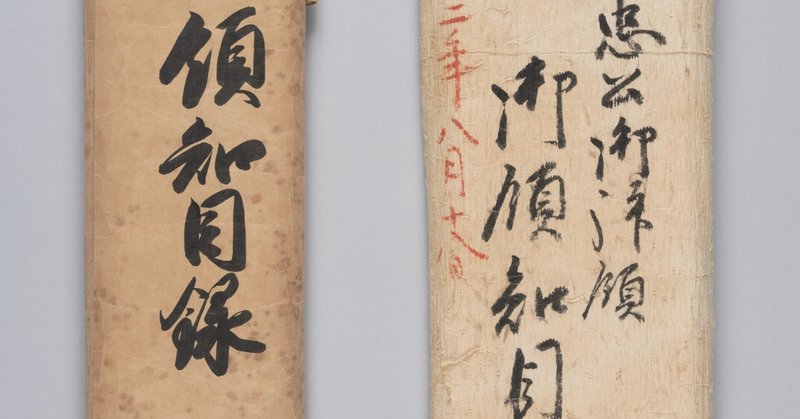 忠公御拝領
御領知目
二年八月十八日
領知目録